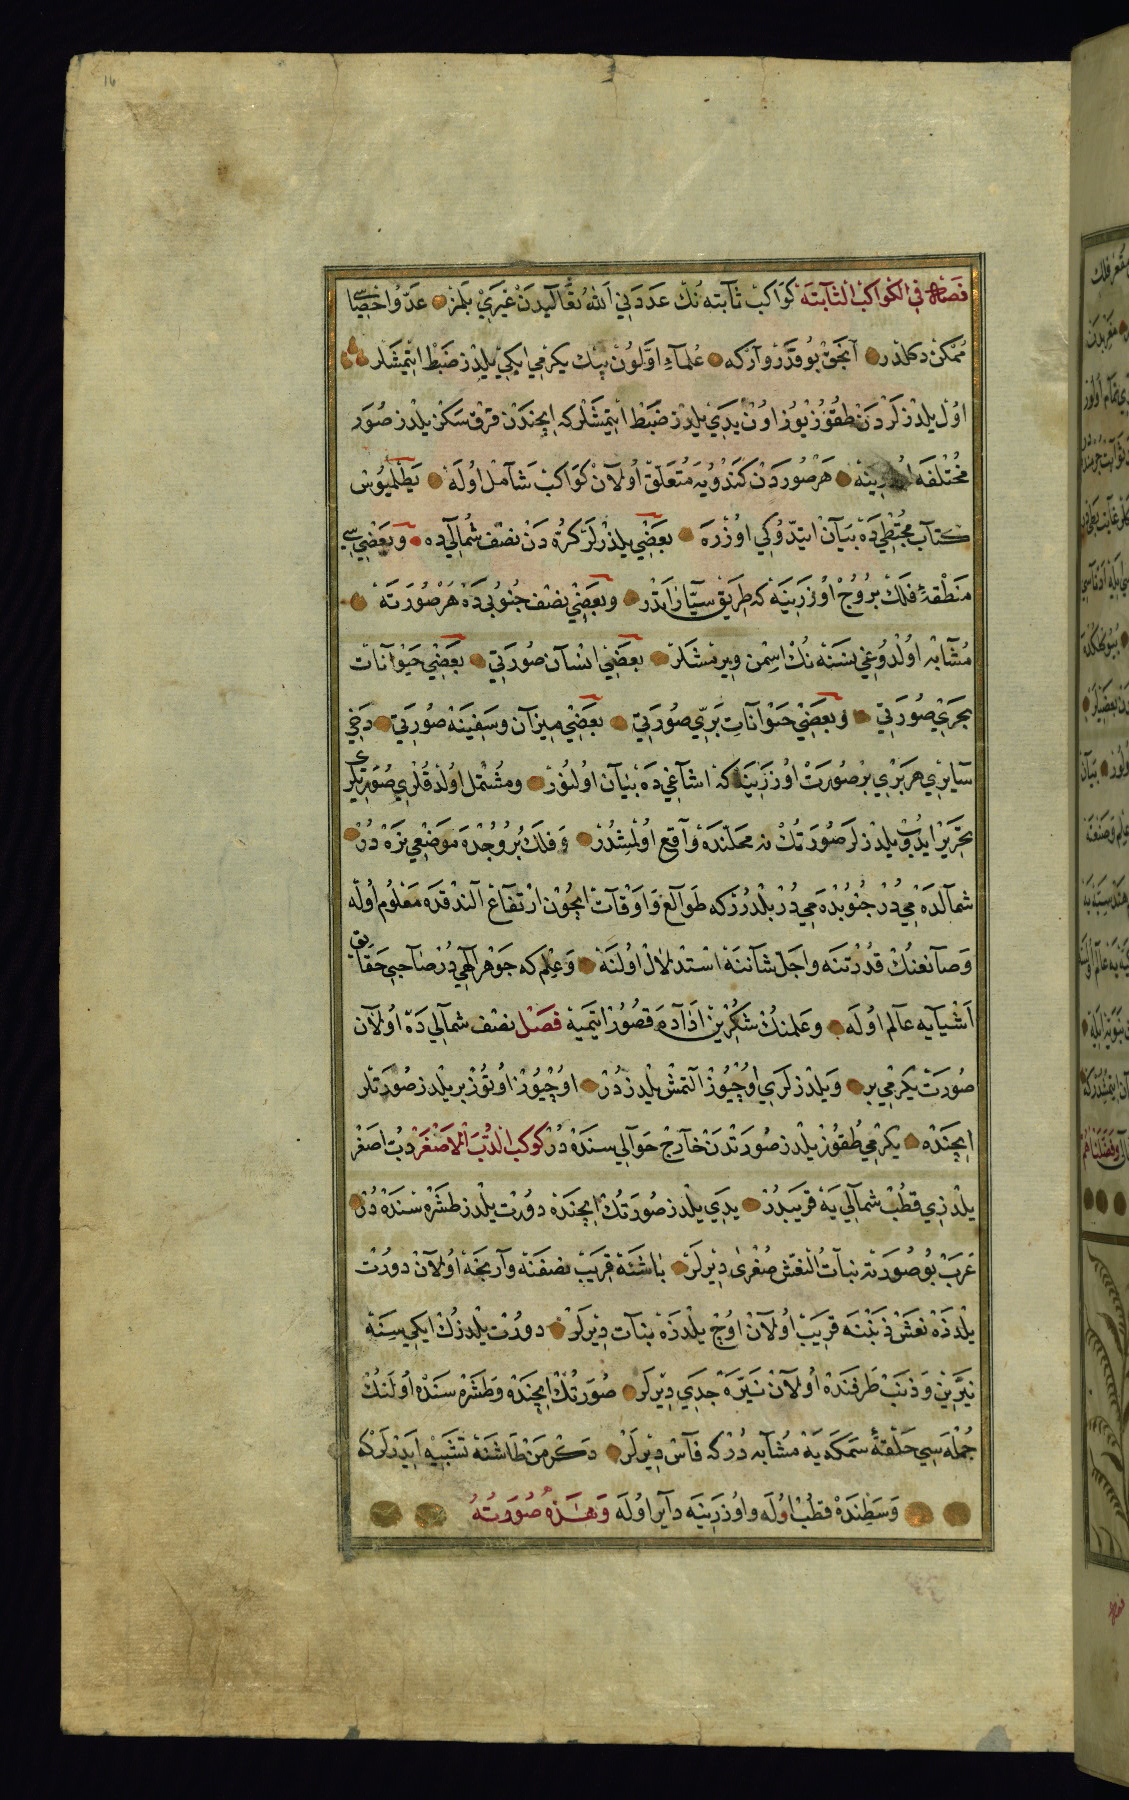 فصل في الكواكب الثابتة كواكب ثابته نك عددني الله تعاليدن غيري بلمز عد و احصاسى
ممكن دكلدر آنجق بو قدر وار كه علماء اولون بيك يكرمي ايكي يلدز ضبط ايتمشلر
اول يلدزلردن طقوز يوز اون يدي يلدز ضبط ايتمشلركه ايچندن قرق سكز يلدز صور
مختلفه اوزرينه هر صوردن كندويه متعلق اولان كواكب شامل اوله بطلميوس
كتاب مجسطي ده بيان ايتدوكي اوزره بعضي يلدزلر كره دن نصف شمالي ده و بعضيسى
منطقۀ فلك بروج اوزرينه كه طريق سياراتدر و بعضي نصف جنوبي ده هر صورته
مشابه اولدوغي نسنه نك اسمن ويرمشلر بعضي انسان صورتي بعضي حيوانات
بحري صورتي و بعضي حيوانات بري صورتي بعضي ميزان و سفينه صورتي دخي
سايري هر بري بر صورت اوزرينه كه اشاغي ده بيان اولنور و مشتمل اولدقلري صورتلرى
تحرير ايدوب يلدزلر صورتك نه محلنده واقع اولمشدر و فلك بروجده موضعي نره در
شمالده مي در جنوبده مي در بلدرر كه طوالع و اوقات ايچون ارتفاع آلندقده معلوم اوله
و صانعنك قدرتنه و اجل شاننه استدلال اولنه و علم كه جوهر الهي در صاحبي حقايق
اشيايه عالم اوله و علمنك شكرين اداده قصور ايتميه فصل نصف شمالي ده اولان
صورت يكرمي بر و يلدزلري اوچيوز التمش يلدزدر اوچيوز اوتوز بر يلدز صورتلر
ايچنده يكرمي طقوز يلدز صورتدن خارج حواليسنده در كوكب الدب الاصغر دب اصغر
يلدزي قطب شمالي يه قريبدر يدي يلدز صورتك ايچنده دورت يلدز طشره سنده در
عرب بو صورته بنات النعش صغرى ديرلر باشنه قريب نصفنه وارنجه اولان دورت
يلدزه نعش ذنبنه قريب اولان اوچ يلدزه بنات ديرلر دورت يلدزك ايكيسنه
نيرين و ذنب طرفنده اولان نيره جدي ديرلر صورتك ايچنده و طشره سنده اولنك
جمله سي حلقۀ سمكه يه مشابه در كه فاس ديرلر دكرمن طاشنه تشبيه ايدرلركه
وسطنده قطب اوله و اوزرينه داير اوله وهذه صورته